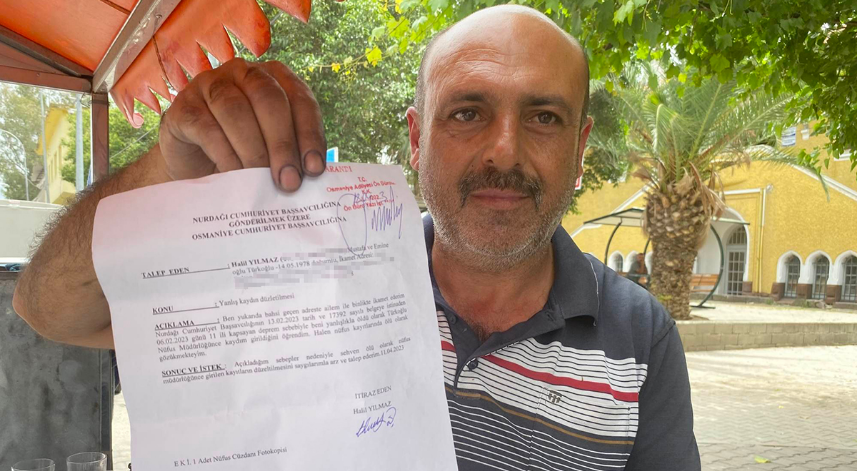 TARANDI
T.C.
Osmaniye Adliyesi Ön Büro
NURDAĞI CUMHURİYET BAŞSAVCILIĞINA
GÖNDERİLMEK ÜZERE
OSMANİYE CUMHURİYET BAŞSAVCILIĞINA
TALEP EDEN : Halil YILMAZ Mustafa ve Emine
oğlu Türkoğlu -14.05.1978 doğumlu, İkamet Adresi:
KONU : Yanlış kaydın düzeltilmesi
AÇIKLAMA : Ben yukarıda bahsi geçen adreste ailem ile birlikte ikamet ederim
Nurdağı Cumhuriyet Başsavcılığının 13.02.2023 tarih ve 17392 sayılı belgeye istinaden
06.02.2023 günü 11 ili kapsayan deprem sebebiyle beni yanlışlıkla öldü olarak Türkoğlu
Nüfus Müdürlüğünce kaydım girildiğini öğrendim. Halen nüfus kayıtlarında ölü olarak
gözükmekteyim.
SONUC VE İSTEK: Açıkladığım sebepler nedeniyle sehven ölü olarak nüfus
müdürlüğünce girilen kayıtların düzeltilmesini saygılarımla arz ve talep ederim.11.04.2023
İTİRAZ EDEN
Halil YILMAZ
E K İ: 1 Adet Nüfus Cüzdanı Fotokopisi